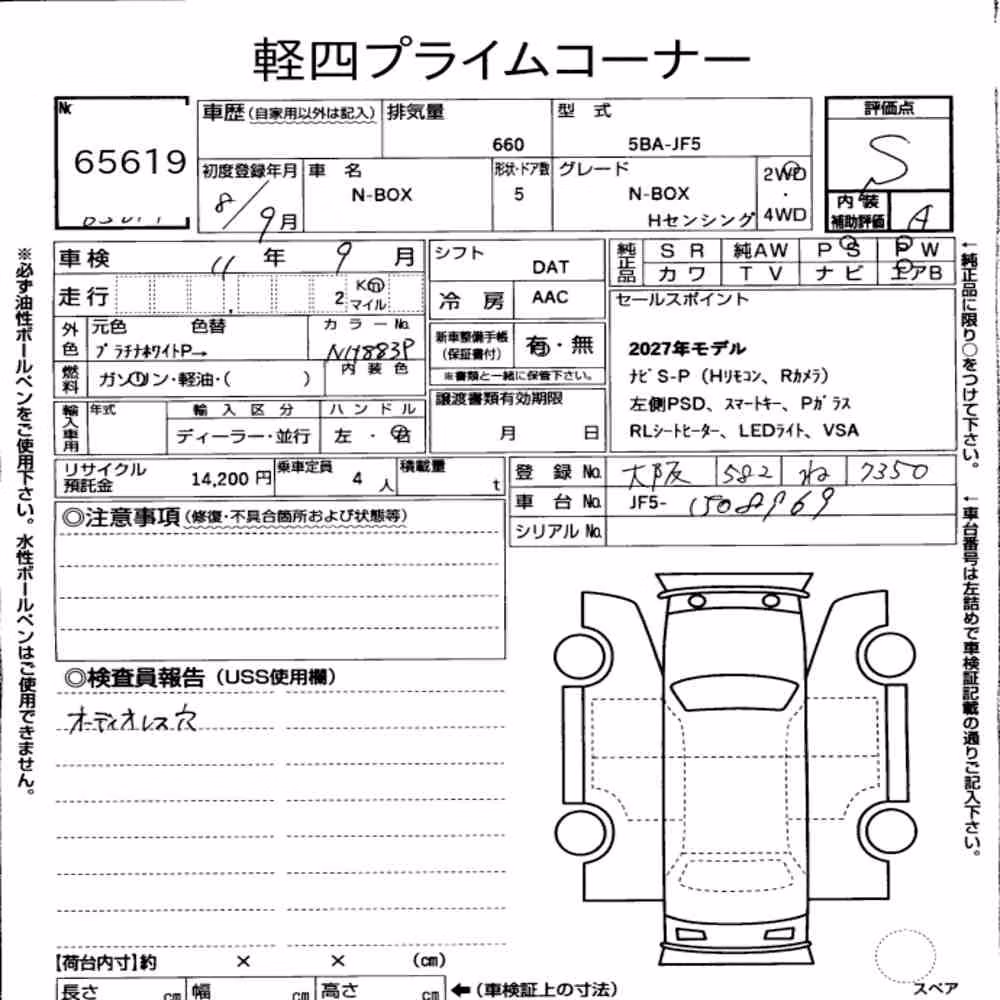 軽四プライムコーナー
№ 65619
車歴(自家用以外は記入) 排気量 660 型式 5BA-JF5
評価点 S
初度登録年月 8/9月 車名 N-BOX 形状・ドア数 5 グレード N-BOX Hセンシング 2WD・4WD
内装補助評価 A
車検 11年 9月
走行 2 Km マイル
シフト DAT
冷房 AAC
純正品 SR 純AW PS PW
カワ TV ナビ エアB
外色 元色 色替 カラーNo.
プラチナホワイトP→ NH883P
内装色
燃料 ガソリン・軽油・( )
新車整備手帳(保証書付) 有・無
※書類と一緒に保管下さい。
セールスポイント
2027年モデル
ナビS-P(Hリモコン、Rカメラ)
左側PSD、スマートキー、Pガラス
RLシートヒーター、LEDライト、VSA
輸入車用 年式 輸入区分 ハンドル
ディーラー・並行 左・右
譲渡書類有効期限
月 日
リサイクル預託金 14,200円 乗車定員 4人 積載量 t
登録No. 大阪 582 ね 7350
車台No. JF5-1508969
シリアルNo.
◎注意事項(修復・不具合箇所および状態等)
◎検査員報告(USS使用欄)
オーディオレス穴
【荷台内寸】約 × × (cm)
長さ cm 幅 cm 高さ cm ←(車検証上の寸法)
スペア
※必ず油性ボールペンをご使用下さい。水性ボールペンはご使用できません。
←純正品に限り○をつけて下さい。
←車台番号は左詰めで車検証記載の通りご記入下さい。